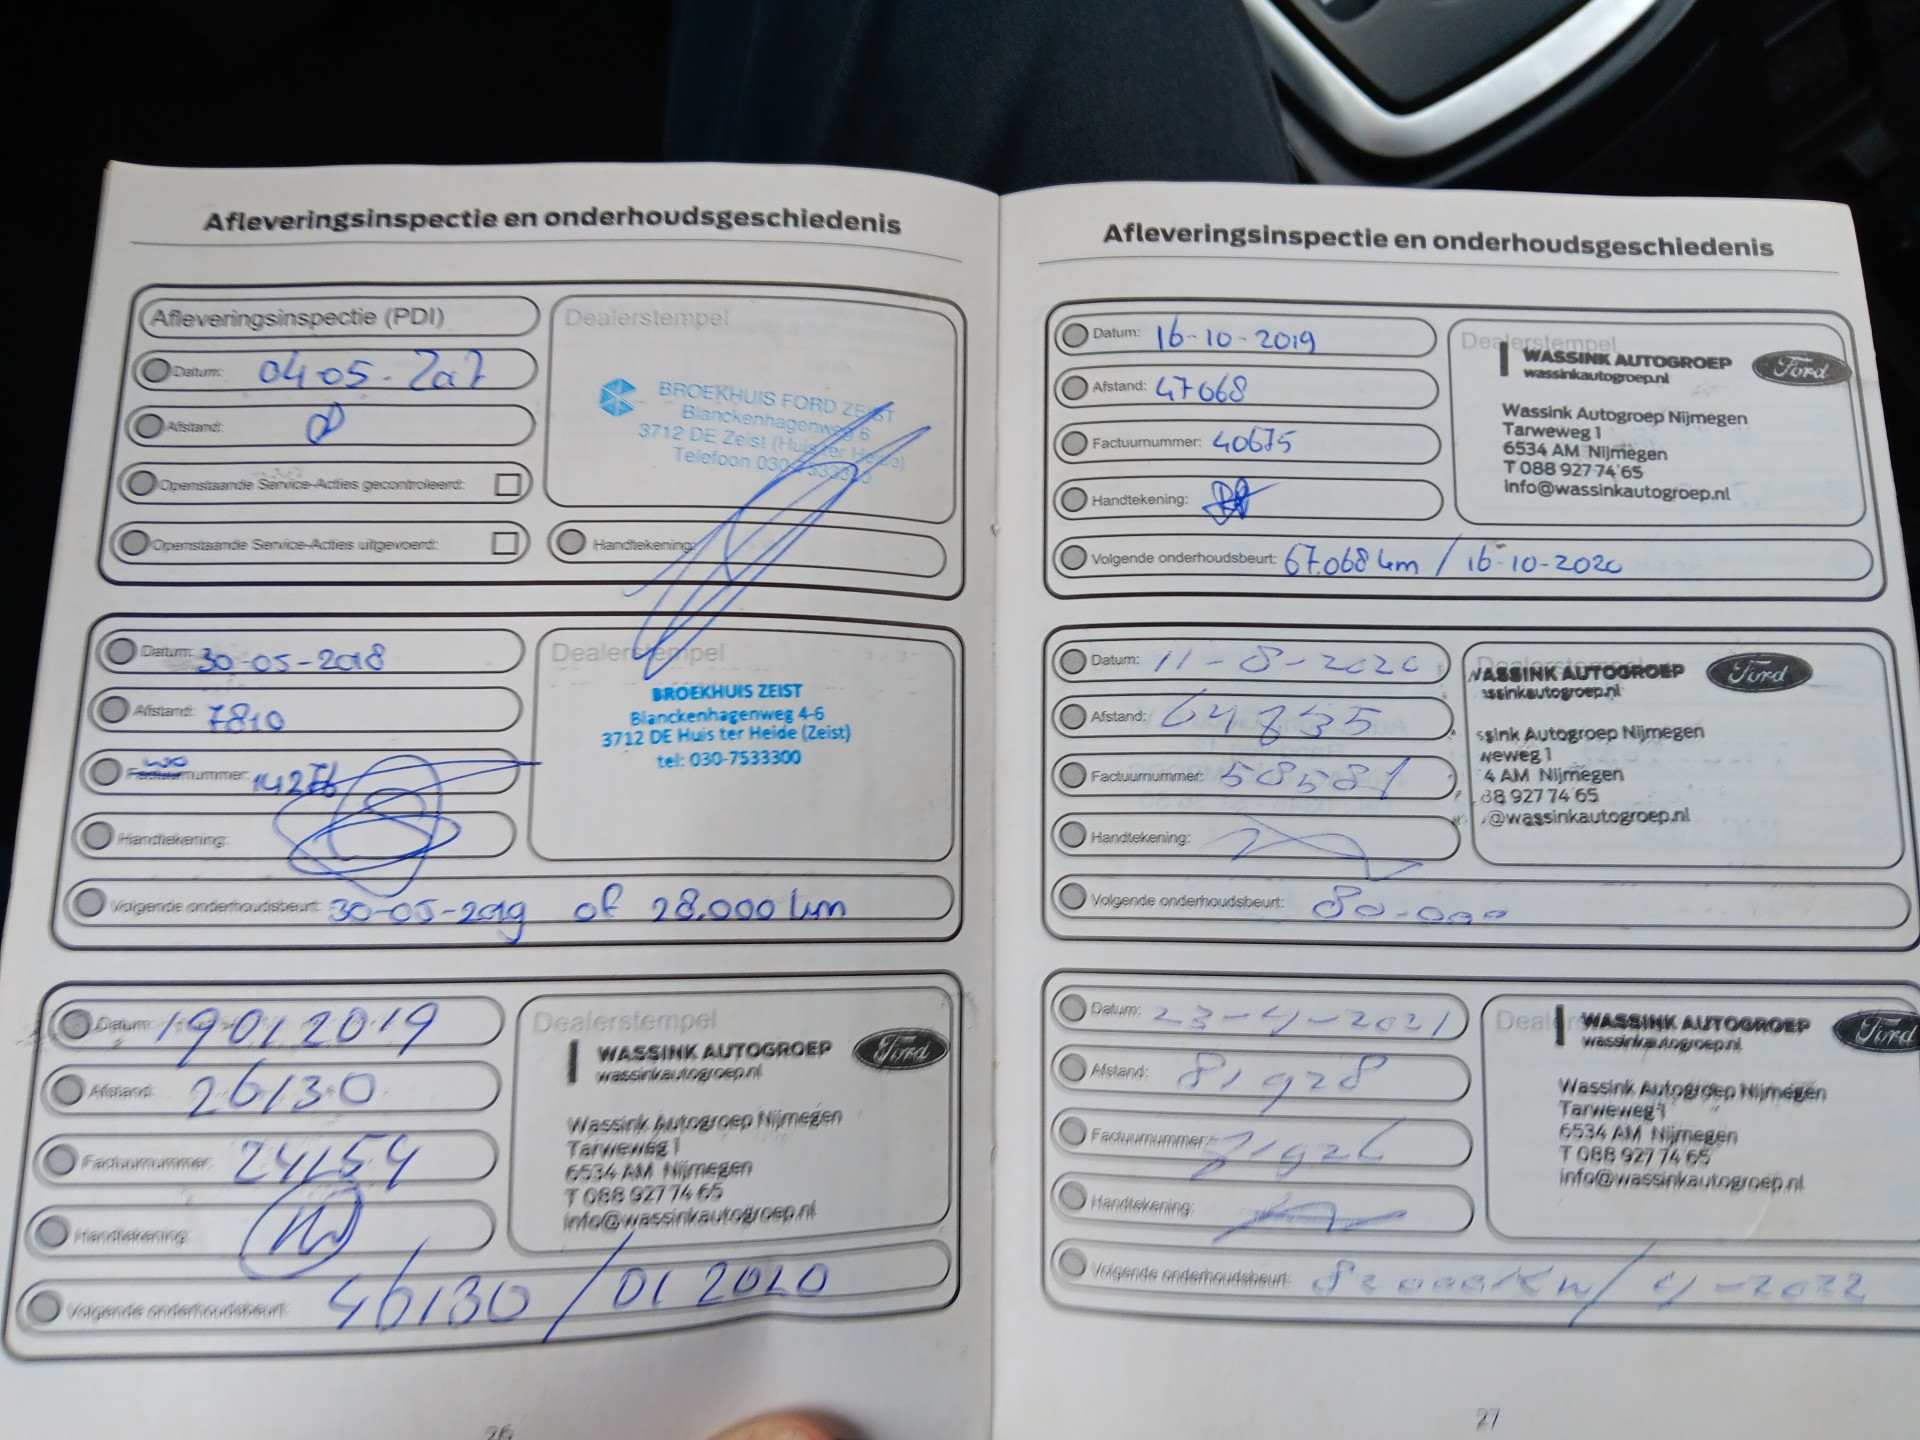 Afleveringsinspectie en onderhoudsgeschiedenis
Afleveringsinspectie (PDI)
Datum: 04-05-2017
Afstand: 8
Openstaande Service-Acties gecontroleerd:
Openstaande Service-Acties uitgevoerd:
Dealerstempel
BROEKHUIS FORD ZEIST
Blanckenhagenweg 6
3712 DE Zeist (Huis ter Heide)
Telefoon 030-7533300
Handtekening:
Datum: 30-05-2018
Afstand: 7810
wo
Factuurnummer: 14276
Handtekening:
Volgende onderhoudsbeurt: 30-05-2019 of 28.000 km
Dealerstempel
BROEKHUIS ZEIST
Blanckenhagenweg 4-6
3712 DE Huis ter Heide (Zeist)
tel: 030-7533300
Datum: 19 01 2019
Afstand: 26130
Factuurnummer: 24154
Handtekening:
Volgende onderhoudsbeurt: 46130 / 01 2020
Dealerstempel
WASSINK AUTOGROEP
wassinkautogroep.nl
Ford
Wassink Autogroep Nijmegen
Tarweweg 1
6534 AM Nijmegen
T 088 927 74 65
info@wassinkautogroep.nl
26
Afleveringsinspectie en onderhoudsgeschiedenis
Datum: 16-10-2019
Afstand: 47068
Factuurnummer: 40675
Handtekening:
Volgende onderhoudsbeurt: 67.068 km / 16-10-2020
Dealerstempel
WASSINK AUTOGROEP
wassinkautogroep.nl
Ford
Wassink Autogroep Nijmegen
Tarweweg 1
6534 AM Nijmegen
T 088 927 74 65
info@wassinkautogroep.nl
Datum: 11-8-2020
Afstand: 64835
Factuurnummer: 58581
Handtekening:
Volgende onderhoudsbeurt: 80-000
Dealerstempel
WASSINK AUTOGROEP
ssinkautogroep.nl
Ford
ssink Autogroep Nijmegen
weweg 1
4 AM Nijmegen
88 927 74 65
@wassinkautogroep.nl
Datum: 23-4-2021
Afstand: 81928
Factuurnummer:
Handtekening:
Volgende onderhoudsbeurt: / 4-2022
Dealerstempel
WASSINK AUTOGROEP
wassinkautogroep.nl
Ford
Wassink Autogroep Nijmegen
Tarweweg 1
6534 AM Nijmegen
T 088 927 74 65
info@wassinkautogroep.nl
27